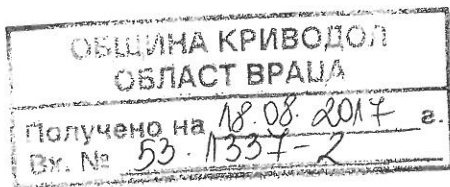 ОБЩИНА КРИВОДОЛ
ОБЛАСТ ВРАЦА
Получено на 18.08.2017 г.
Вх. № 53.1337-2